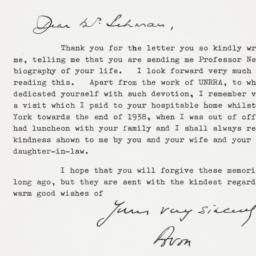 Dear Mr. Lehman,
Thank you for the letter you so kindly wr
me, telling me that you are sending me Professor Ne
biography of your life. I look forward very much
reading this. Apart from the work of UNRRA, to wh
dedicated yourself with such devotion, I remember v
a visit which I paid to your hospitable home whilst
York towards the end of 1938, when I was out of off
had luncheon with your family and I shall always re
kindness shown to me by you and your wife and your
daughter-in-law.
I hope that you will forgive these memori
long ago, but they are sent with the kindest regard
warm good wishes of
Yours very sincerel
Avon